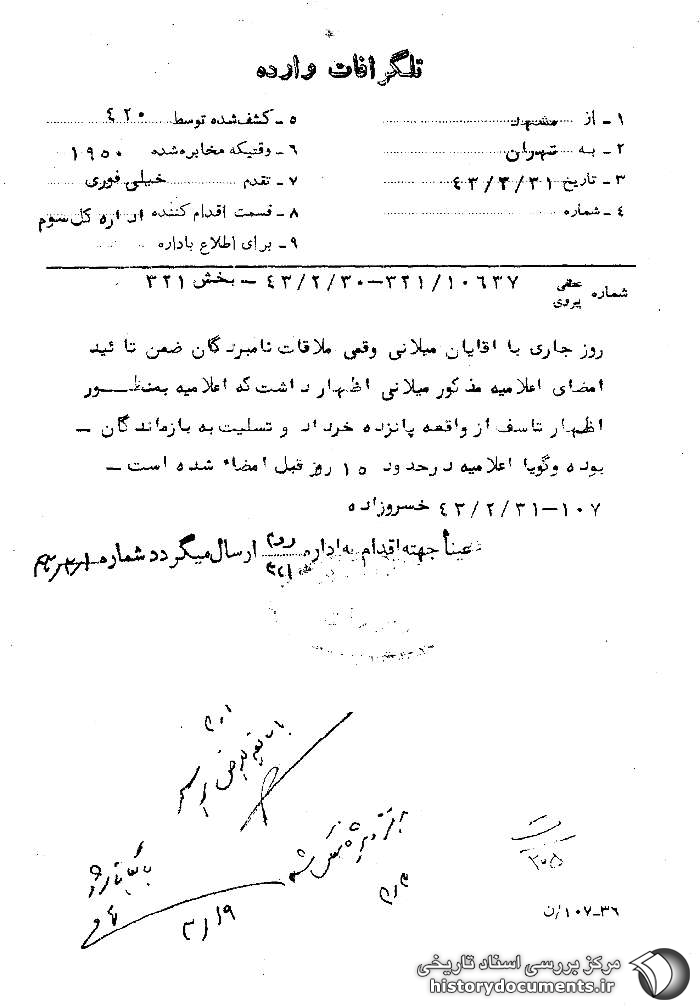 تلگرافات وارده
۱ - از مشهد
۲ - به تهران
۳ - تاریخ ۴۳/۲/۳۱
۴ - شماره
۵ - کشف شده توسط ۴۲۰
۶ - وقتیکه مخابره شده ۱۹۵۰
۷ - تقدم خیلی فوری
۸ - قسمت اقدام کننده اداره کل سوم
۹ - برای اطلاع باداره
شماره عطفی پیروی ۳۲۱/۱۰۶۳۷-۴۳/۲/۳۰ - بخش ۳۲۱
روز جاری با اقایان میلانی وقمی ملاقات نامبردگان ضمن تائید
امضای اعلامیه مذکور میلانی اظهار داشت که اعلامیه بمنظور
اظهار تاسف از واقعه پانزده خرداد و تسلیت به بازماندگان -
بوده وگویا اعلامیه درحدود ۱۵ روز قبل امضاء شده است -
۱۰۷-۴۳/۲/۳۱ خسروزاده
عیناً جهته اقدام به اداره ارسال میگردد شماره
۳۲۱
بایگانی شود
۳/۱۹
۳۶-۱۰۷/ن
مرکز بررسی اسناد تاریخی
historydocuments.ir